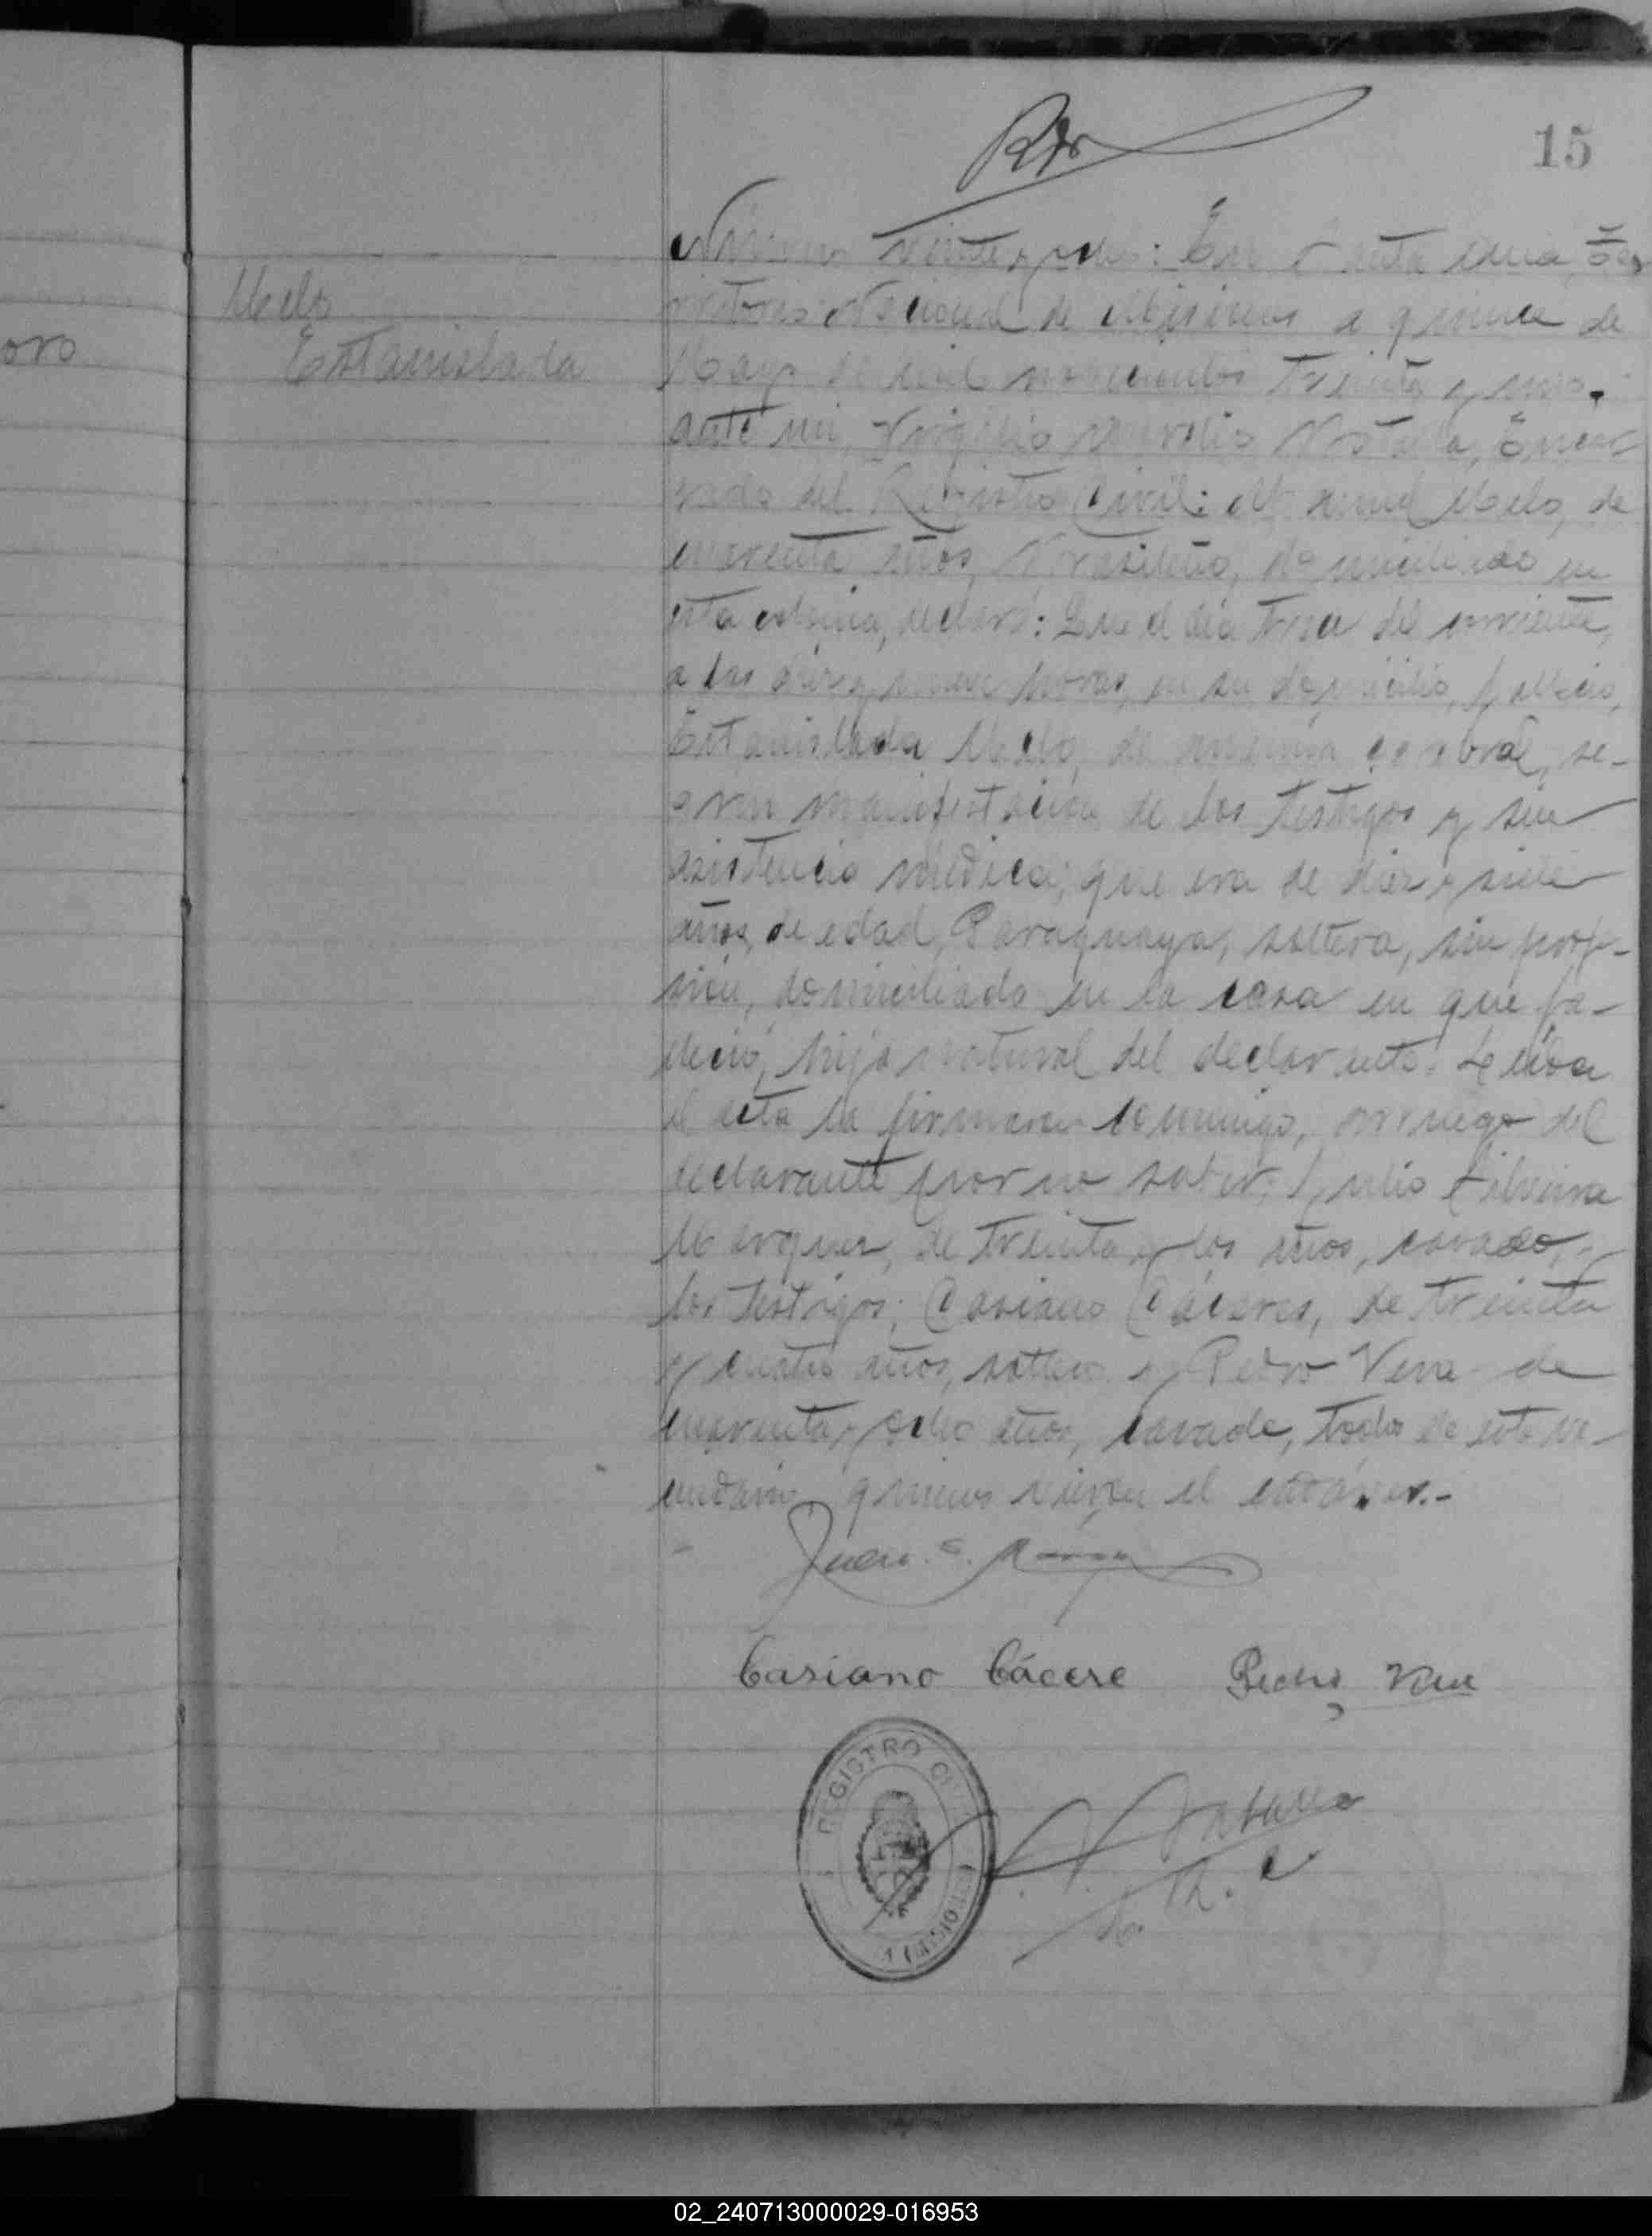 15
Melo
Estanislada
oro
Número veinte y dos: En Santa Ana, Te-
rritorio Nacional de Misiones a quince de
Mayo de mil novecientos treinta y uno.
ante mi, Virgilio Natalla, Encar
gado del Registro Civil: Manuel Melo, de
cuarenta años, Brasileño, domiciliado en
esta colonia, declaró: Que el día trece del corriente,
a las diez y nueve horas, en su domicilio, falleció,
Estanislada Melo, de anemia cerebral, se-
gún manifestación de los testigos y sin
asistencia médica; que era de diez y siete
años, de edad, Paraguaya, soltera, sin profe-
sión, domiciliada en la casa en que fa-
lleció, hija natural del declarante. Leída
el acta la firmaron conmigo, por ruego del
declarante por no saber, Silveira
Marquez, de treinta y dos años, casado,
los testigos; Casiano Cáceres, de treinta
y cuatro años, soltero y Pedro Vera de
cuarenta y ocho años, casado, todos de este ve-
cindario, quienes vieron el cadáver.-
Juan S.
Casiano Cácere Pedro Vera
REGISTRO CIVIL
MISIONES